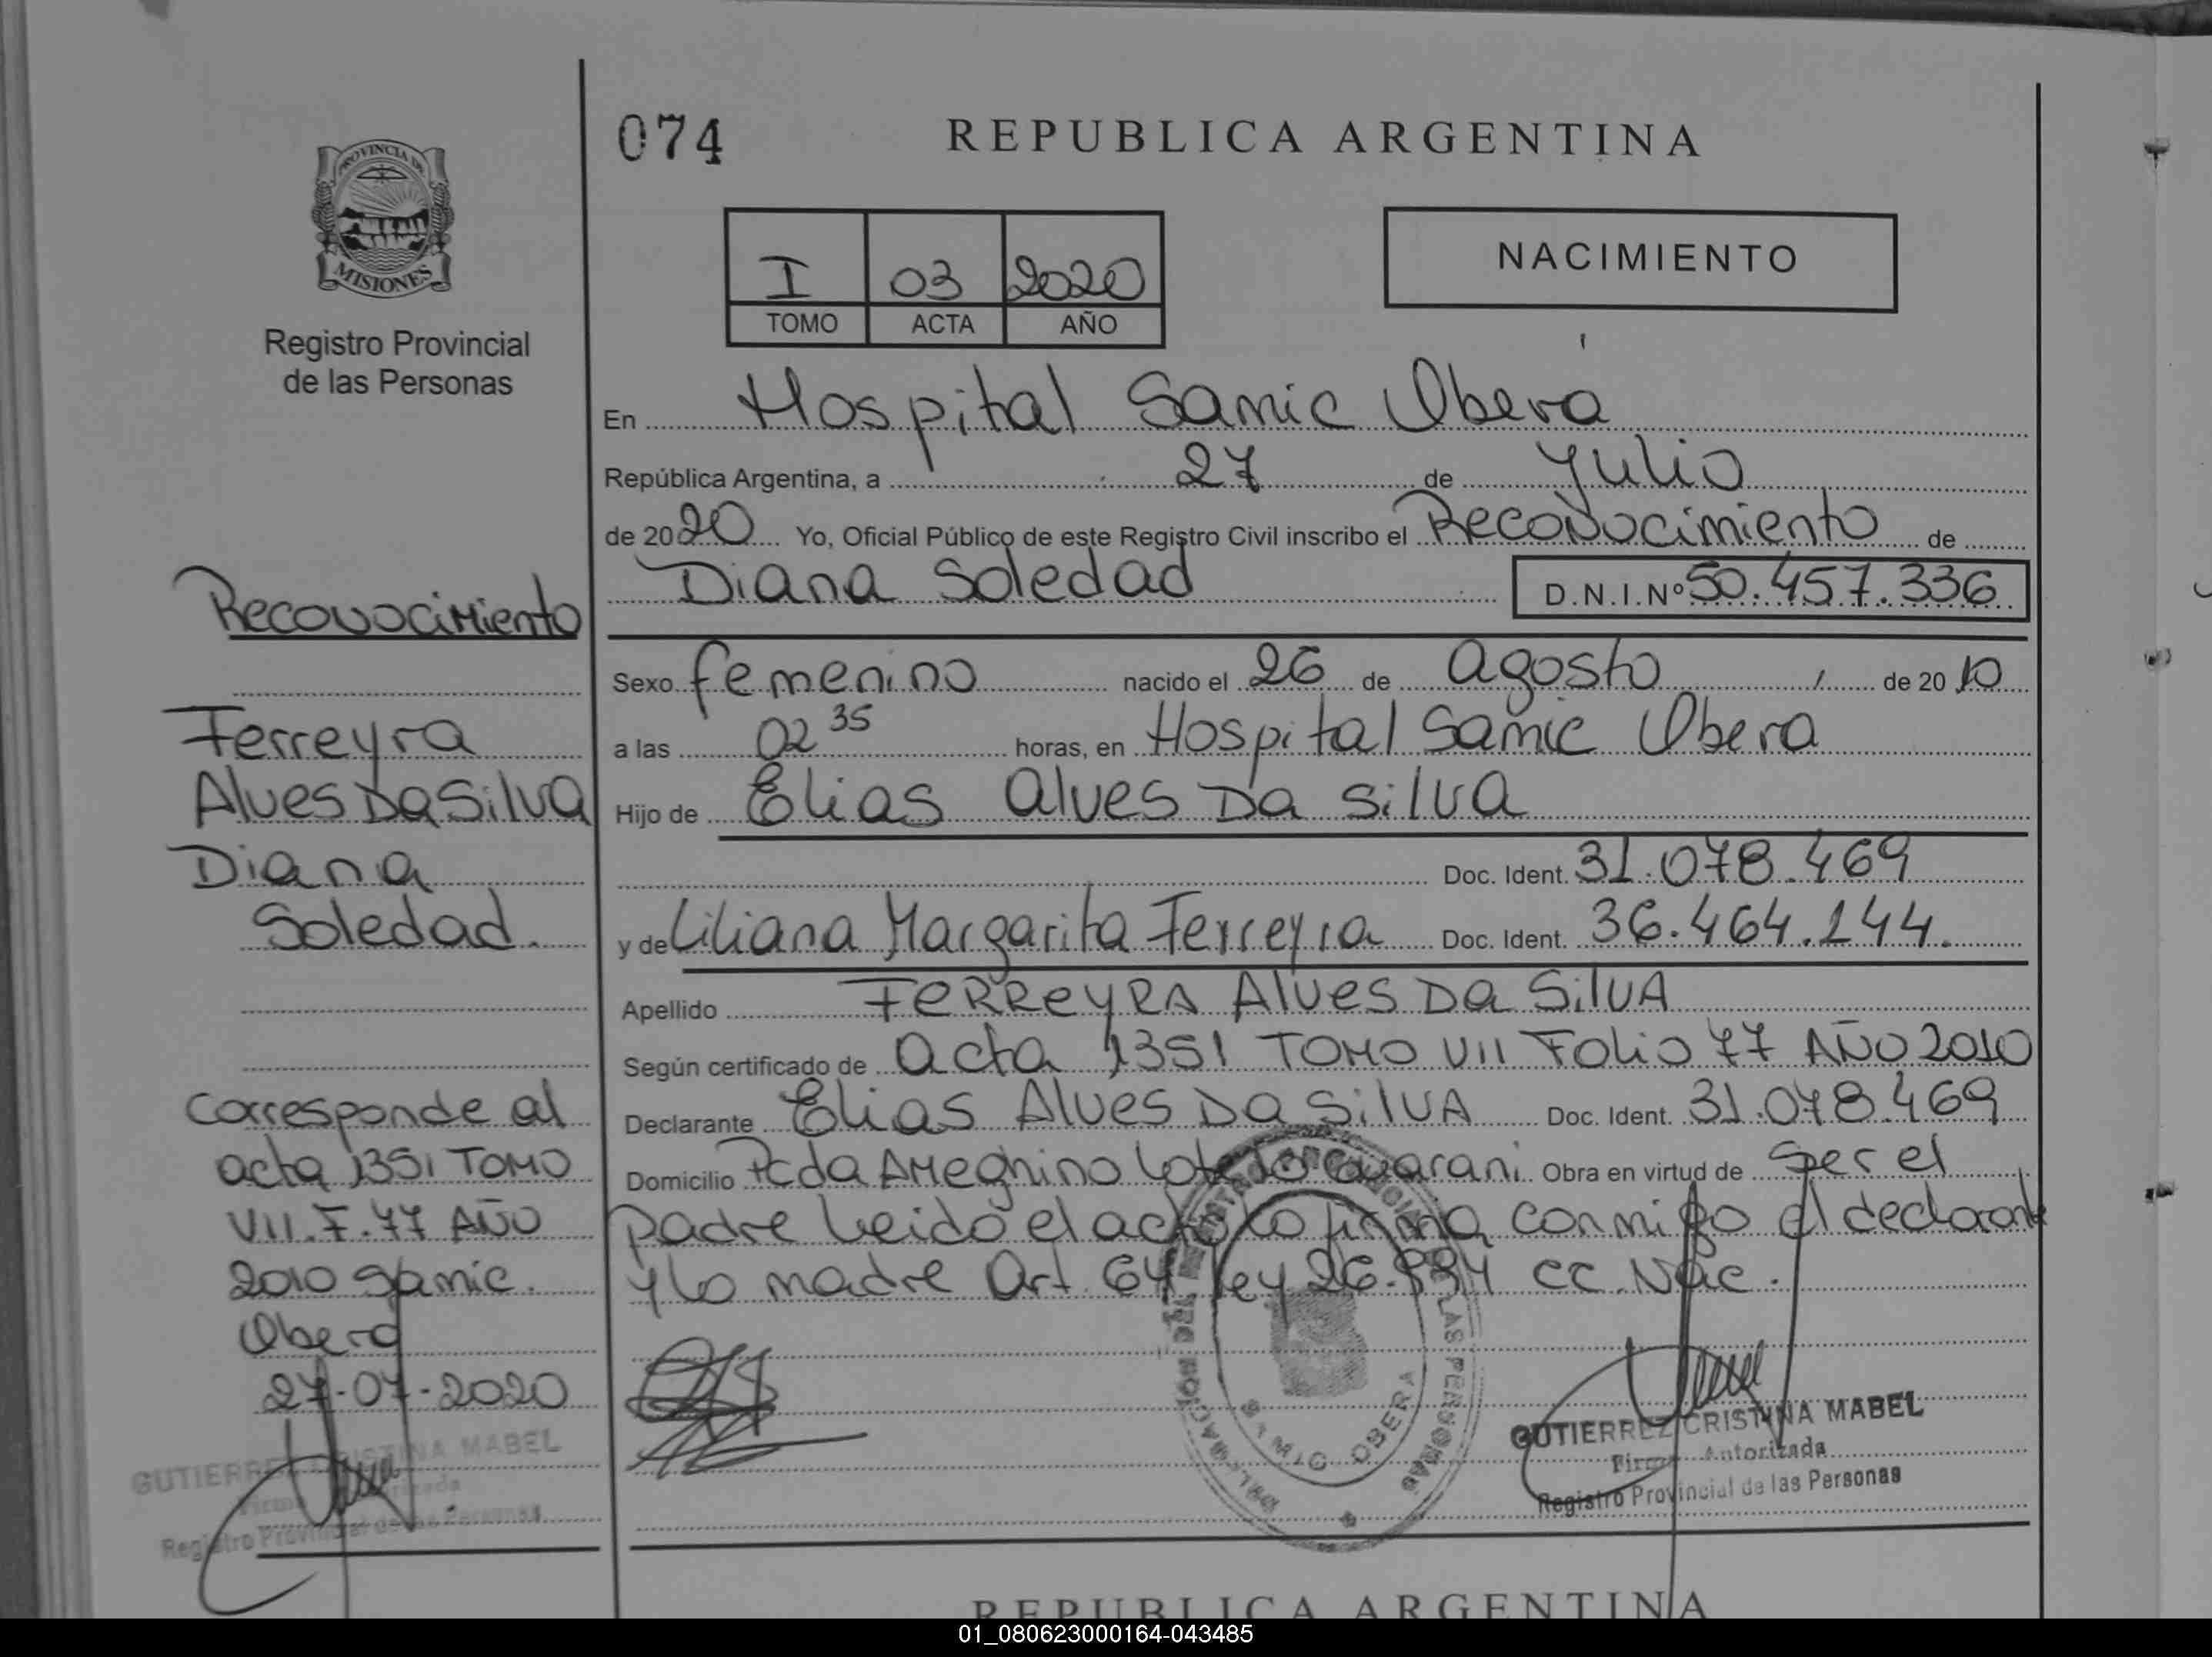 074
REPUBLICA ARGENTINA
PROVINCIA DE
MISIONES
Registro Provincial
de las Personas
I 03 2020
TOMO ACTA AÑO
NACIMIENTO
En Hospital Samic Oberá
República Argentina, a 27 de Julio
de 2020 Yo, Oficial Público de este Registro Civil inscribo el Reconocimiento de
Diana Soledad D.N.I.Nº 50.457.336
Sexo femenino nacido el 26 de agosto de 2010
a las 02 35 horas, en Hospital Samic Obera
Hijo de Elias Alves Da Silva
Doc. Ident. 31.078.469
y de Liliana Margarita Ferreyra Doc. Ident. 36.464.144.
Apellido FERREYRA Alves Da SilVA
Según certificado de acta 1351 TOMO VII Folio 77 AÑO 2010
Declarante Elias Alves Da SilVA Doc. Ident. 31.078.469
Domicilio Pcda AMeghino Guarani Obra en virtud de Ser el
padre Leido el acta lo firma conmigo el declarante
y la madre Art 64 ley 26.994 CC.Nac.
Reconocimiento
Ferreyra
Alves Da Silva
Diana
Soledad.
Corresponde al
acta 1351 TOMO
VII.F.77 AÑO
2010 Samic.
Obera
27-07-2020
GUTIERREZ CRISTINA MABEL
Firma Autorizada
Registro Provincial de las Personas
DELEGACION DEL REGISTRO PROVINCIAL DE LAS PERSONAS
SAMIC OBERA
GUTIERREZ CRISTINA MABEL
Firma Autorizada
Registro Provincial de las Personas
REPUBLICA ARGENTINA
01_080623000164-043485